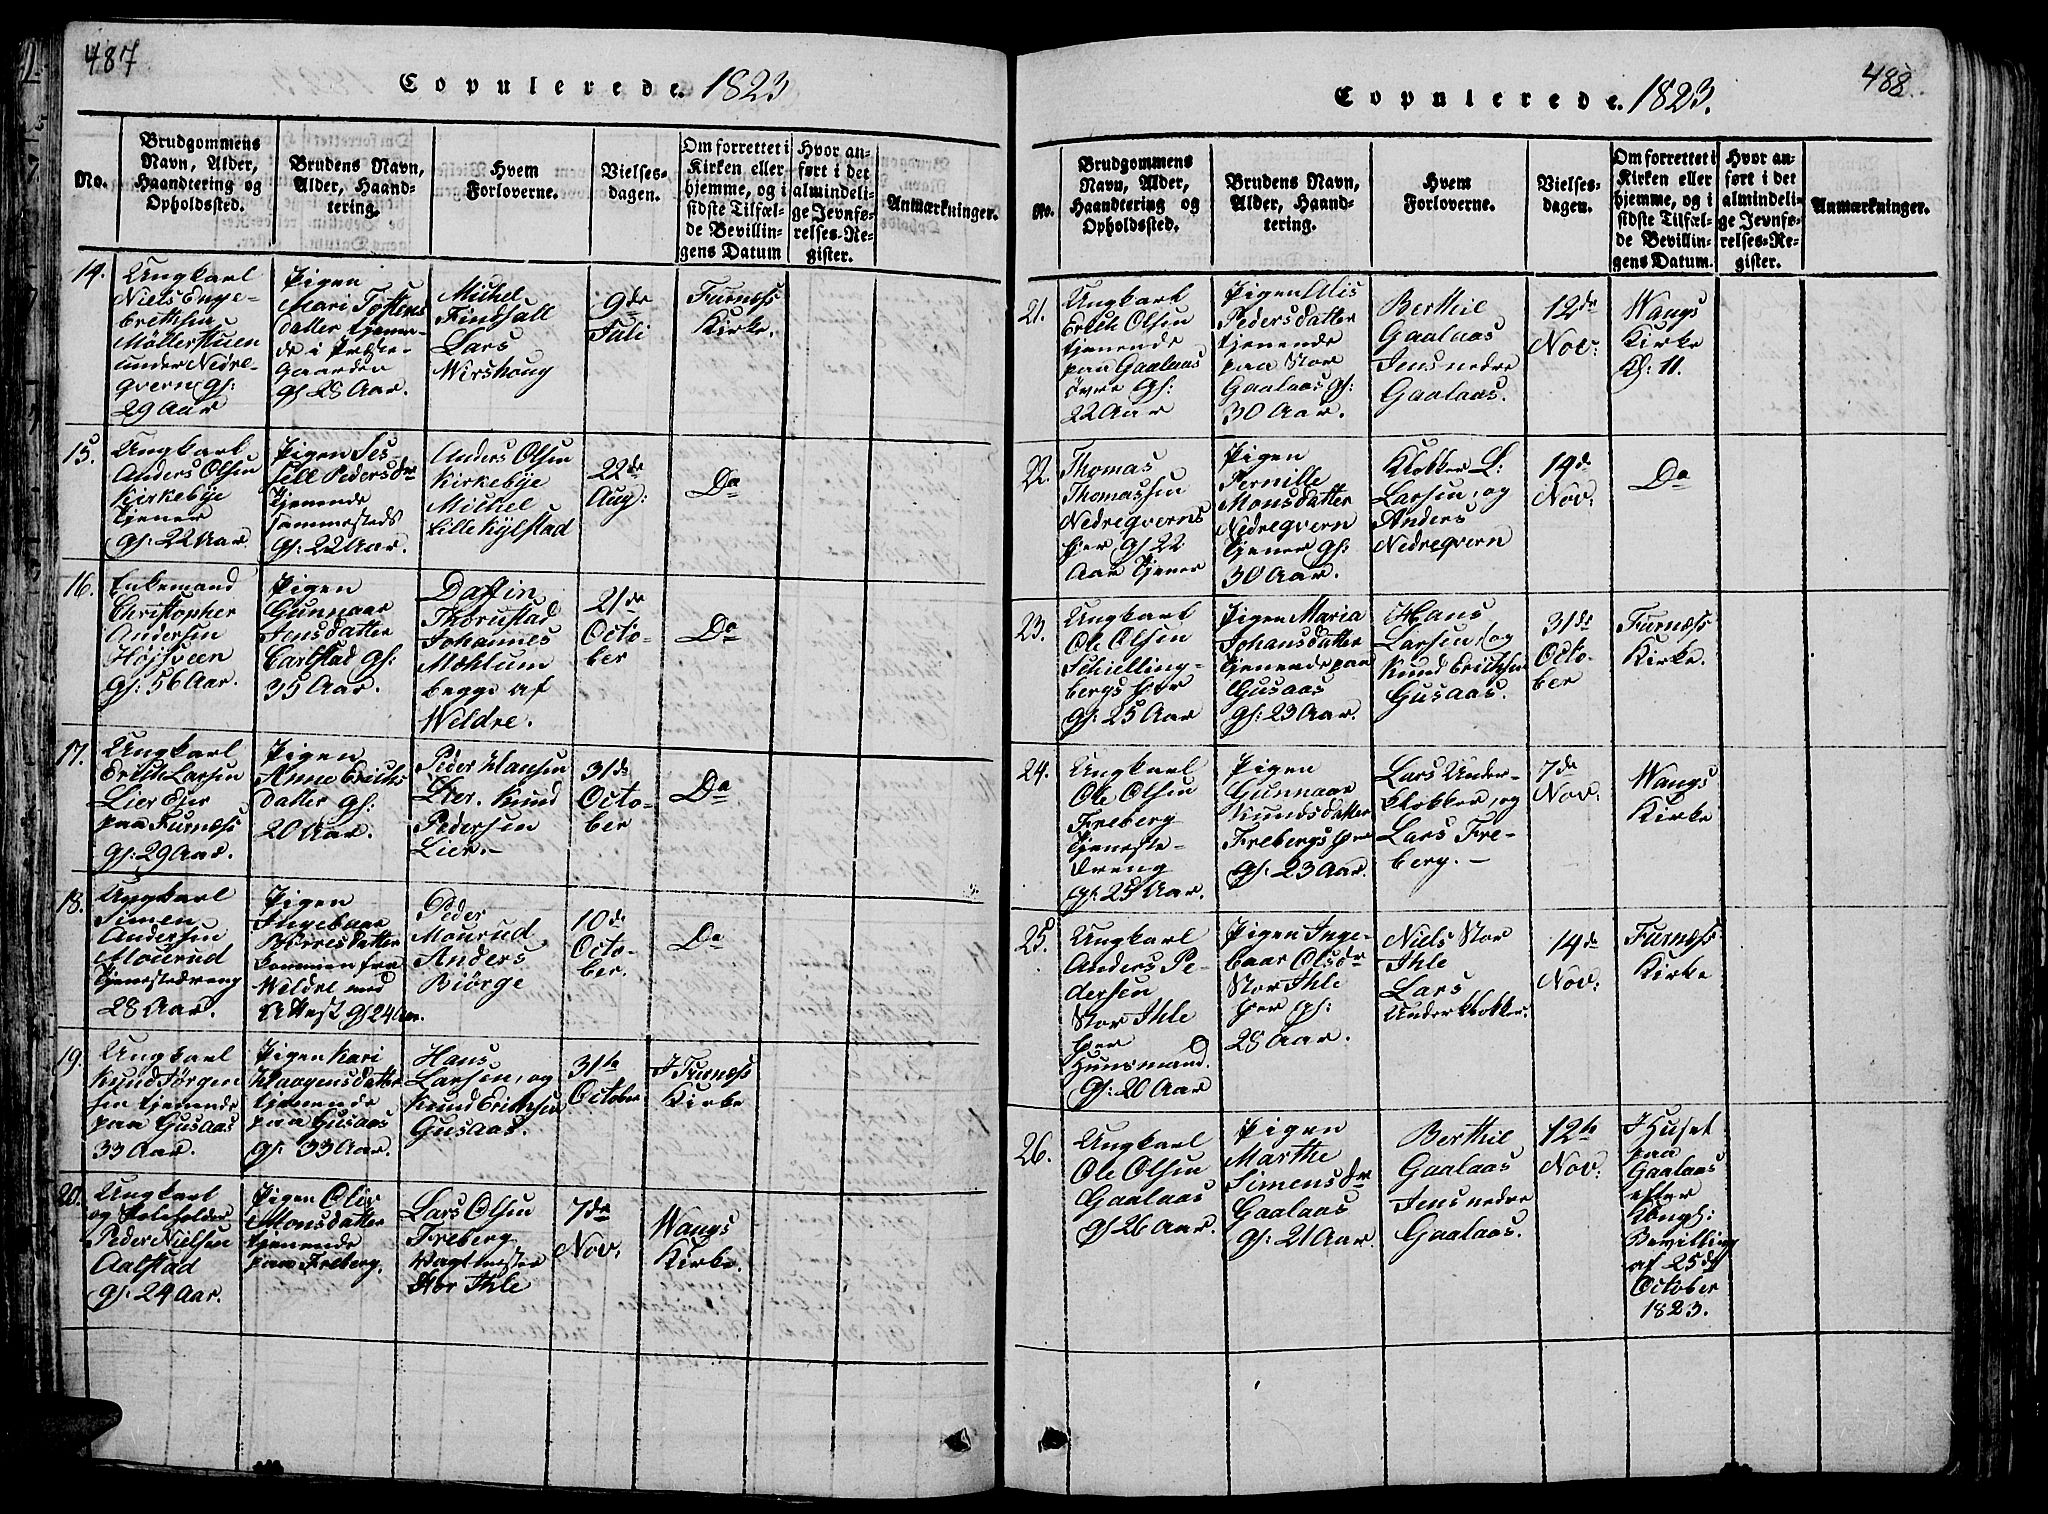 487
Copulerede. 1823
No.
Brudgommens
Navn, Alder,
Haandtering og
Opholdssted.
Brudens Navn,
Alder, Haand-
tering.
Hvem
Forloverne.
Vielses-
dagen.
Om forrettet i
Kirken eller
hjemme, og i
sidste Tilfæl-
de Bevillin-
gens Datum
Hvor an-
ført i det
almindeli-
ge Jevnfø-
relses-Re-
gister.
Anmærkninger.
14.
Ungkarl
Niels Enge-
brethsen
Möllerstuen
under Nedre-
qvern gl:
29 Aar
Pigen
Mari Tostens
datter tjenen-
de i Præste-
gaarden
gl 28 Aar.
Michel
Findsall
Lars
Wirshoug
9de
Juli
Furnæss
Kirke.
15.
Ungkarl
Anders Olsen
Kirkebye
Tjener
gl: 22 Aar
Pigen Ses-
sell Pedersdr
Tjenende
sammesteds
gl: 22 Aar.
Anders Olsen
Kirkebye
Michel
Lille Kylstad
22de
Aug:
Do
16.
Enkemand
Christopher
Andersen
Højsveen
gl: 56 Aar.
Pigen
Gunnaar
Jensdatter
Carlstad gl:
35 Aar.
Daffin
Thorustad
Johannes
Mæhlum
begge af
Weldre.
21de
Octo-
ber
Do
17.
Ungkarl
Erich Larsen
Lier Ejer
paa Furnæss
gl: 29 Aar.
Pigen
Anne Erichs
datter gl:
20 Aar.
Peder Hansen
Lier. Knud
Pedersen
Lier.-
31de
Octo-
ber
Do
18.
Ungkarl
Simen
Andersen
Mourud
Tjenestedreng
28 Aar.
Pigen
Ingebaar
Börresdatter
kommen fra
Weldre med
Attest gl 24 Aar.
Peder
Mourud
Anders
Biörge
10de
Octo-
ber.
Do
19.
Ungkarl
Knud Jörgen
sen tjenende
paa Gusaas
33 Aar.
Pigen Kari
Haagensdatter
tjenende
paa Gusaas
gl: 33 Aar.
Hans
Larsen, og
Knud Erichsen
Gusaas.
31te
October
I Furnæss
Kirke
20.
Ungkarl
og Selveholder
Peder Nielsen
Aalstad
gl: 24 Aar.
Pigen Oliv
Monsdatter
tjenende
paa Freberg.
Lars Olsen
Freberg
Vagtmester
Stor Ihle
7de
Nov.
Wangs
Kirke.
488.
Copulerede. 1823.
No.
Brudgommens
Navn, Alder,
Haandtering og
Opholdssted.
Brudens Navn,
Alder, Haand-
tering.
Hvem
Forloverne.
Vielses-
dagen.
Om forrettet i
Kirken eller
hjemme, og i
sidste Tilfæl-
de Bevillin-
gens Datum.
Hvor an-
ført i det
almindeli-
ge Jevnfø-
relses-Re-
gister.
Anmærkninger.
21.
Ungkarl
Erich Olsen
tjenende
paa Gaalaas
övre gl:
22 Aar
Pigen Alis
Pedersdatter
tjenende
paa Stor
Gaalaas gl:
30 Aar.
Berthil
Gaalaas
Jens nedre
Gaalaas.
12de
Nov:
Wangs
Kirke
Kl: 11.
22.
Thomas
Thomassen
Nedreqverns
Ejer gl 22
Aar Tjener
Pigen
Pernille
Monsdatter
Nedreqvern
tjener gl:
30 Aar.
Klokker L:
Larsen, og
Anders
Nedreqvern
14de
Nov:
Do
23.
Ungkarl
Ole Olsen
Schielling-
bergs Ejer
gl: 25 Aar
Pigen Maria
Johansdatter
tjenende paa
Gusaas
gl: 23 Aar.
Hans
Larsen, og
Knud Erichsen
Gusaas.
31de
Octo-
ber
Furnæss
Kirke.
24.
Ungkarl
Ole Olsen
Freberg
Tjeneste-
dreng
gl: 25 Aar.
Pigen
Gunnaar
Knudsdatter
Frebergs Ejer
gl: 23 Aar.
Lars Under-
klokker, og
Lars Fre-
berg. -
7de
Nov:
Wangs
Kirke
25.
Ungkarl
Anders Pe-
dersen
Stor Ihle
Ejer
Huusmand.
gl: 20 Aar
Pigen Inge-
baar Olsdr
Stor Ihle
Ejer gl:
28 Aar.
Niels Stor
Ihle
Lars
Underklokker.
14de
Nov:
Furnæss
Kirke
26.
Ungkarl
Ole Olsen
Gaalaas
gl 26 Aar.
Pigen
Marthe
Simensdr
Gaalaas
gl: 21 Aar.
Berthil
Gaalaas
Jens nedre
Gaalaas.
12te
Nov:
I Huset
paa
Gaalaas
efter
Kongl:
Bevilling
af 25de
October
1823.